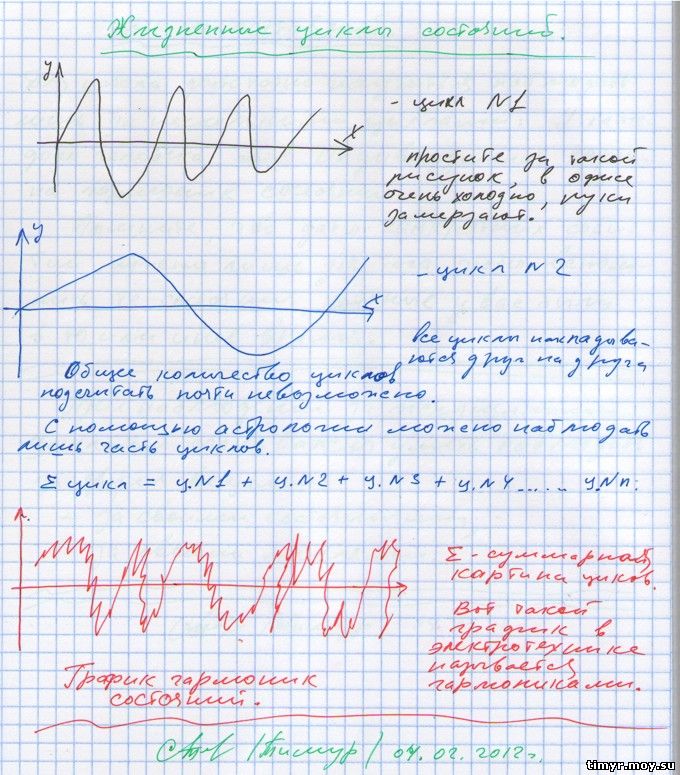 Жизненные циклы состояний.
y
- цикл N1
x
простите за такой
рисунок, в офисе
очень холодно, руки
замерзают.
y
- цикл N2
x
все циклы накладыва-
ются друг на друга
Общее количество циклов
подсчитать почти невозможно.
С помощью астрологии можно наблюдать
лишь часть циклов.
Σ цикл = ц.N1 + ц.N2 + ц.N3 + ц.N4 ...... ц.Nn.
Σ - суммарная
картина циклов.
Вот такой
график в
электротехнике
называется
гармониками.
График гармоник
состояний.
/Тимур/ 04.02.2012г.
timyr.moy.su